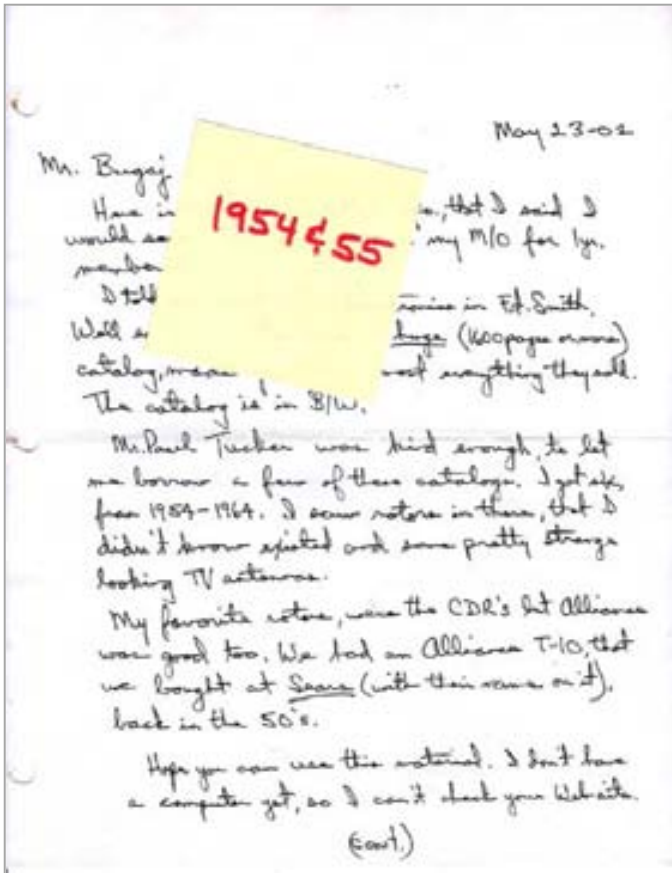 May 23-02
Mr. Bugaj
Here is that I said I
would my M/O for 1yr.
member
I told in Ft. Smith.
Well huge (1600 pages or more)
catalog, most everything they sold.
The catalog is in B/W.
1954 & 55
Mr. Paul Tucker was kind enough, to let
me borrow a few of these catalogs. I got six,
from 1954-1964. I saw rotors in there, that I
didn't know existed and some pretty strange
looking TV antennas.
My favorite rotors, were the CDR's but Alliance
was good too. We had an Alliance T-10, that
we bought at Sears (with their name on it),
back in the 50's.
Hope you can use this material. I don't have
a computer yet, so I can't check your Website.
(cont.)